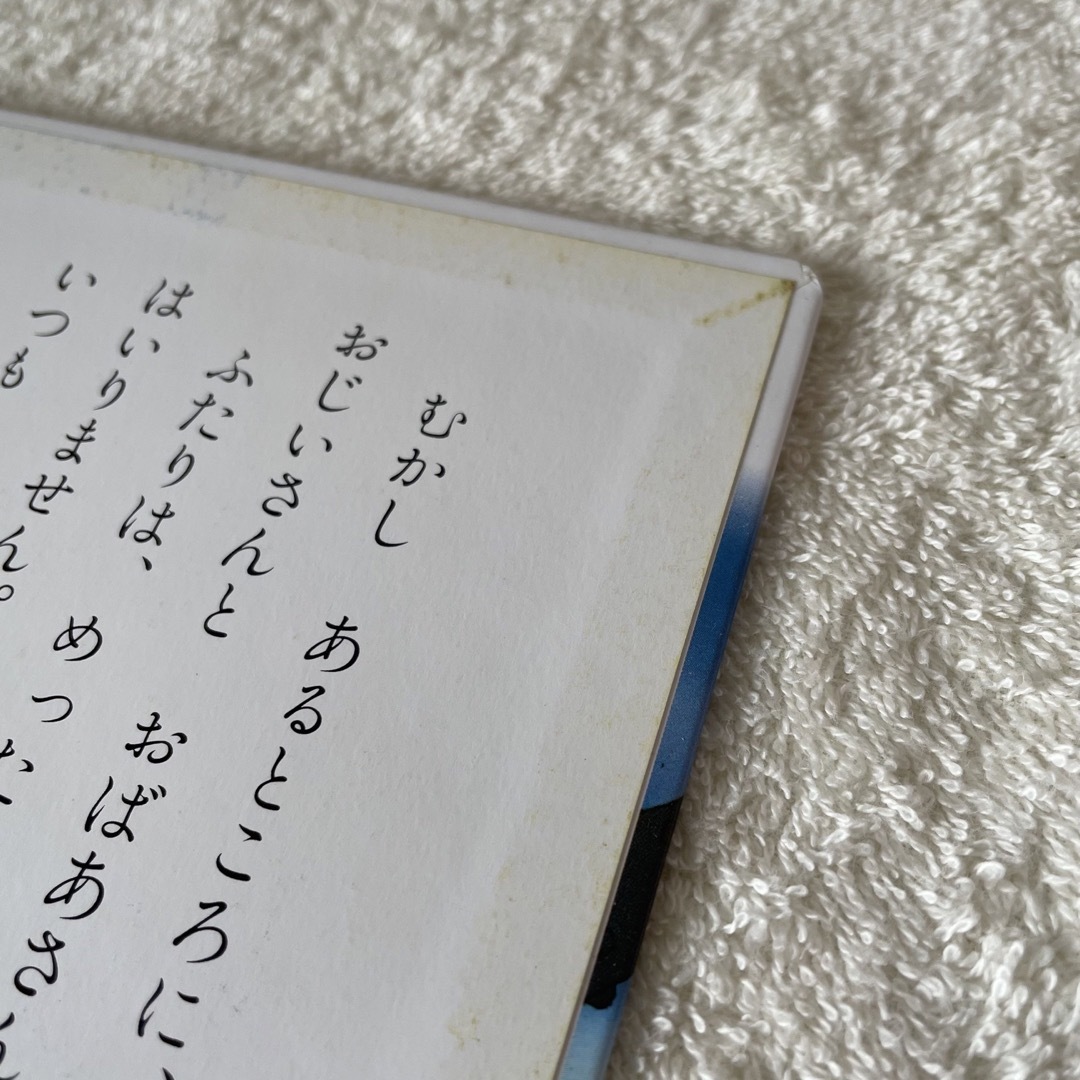 むかし　あるところに、
おじいさんと　おばあさん
ふたりは、　めった
はいりません。
いつも